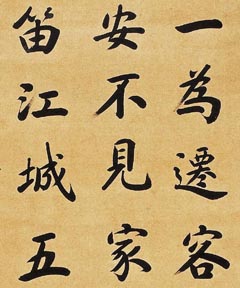 一為遷客
安不見家
笛江城五